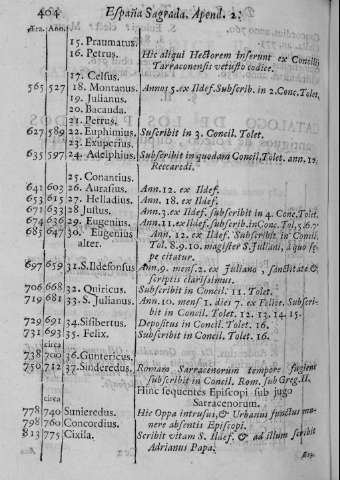 404 España Sagrada. Apend. 2.
Æra. Ann.
15. Praumatus.
16. Petrus. Hic aliqui Hectorem inserunt ex Concilii
Tarraconensis vetusto codice.
17. Celsus.
565 527 18. Montanus. Annos 5. ex Ildef. Subscrib. in 2. Conc. Tolet.
19. Julianus.
20. Bacauda.
21. Petrus.
627 589 22. Euphimius. Suscribit in 3. Concil. Tolet.
23. Exuperius.
635 597 24. Adelphius. Subscribit in quodam Concil. Tolet. ann. 12.
Reccaredi.
25. Conantius.
641 603 26. Aurasius. Ann. 12. ex Ildef.
653 615 27. Helladius. Ann. 18. ex Ildef.
671 633 28. Justus. Ann. 3. ex Ildef. subscribit in 4. Conc. Tolet.
674 636 29. Eugenius. Ann. 11. ex Ildef. subscrib. in Conc. Tol. 5. 6. 7
685 647 30. Eugenius Ann. 12. ex Ildef. Subscribit in Concil.
alter. Tol. 8. 9. 10. magister S. Juliani, à quo sę-
pe citatur.
697 659 31. S. Ildefonsus Ann. 9. mens. 2. ex Juliano, sanctitate &
scriptis clarissimus.
706 668 32. Quiricus. Subscribit in Concil. 11. Tolet.
719 681 33. S. Julianus. Ann. 10. mens. 1. dies 7. ex Felice. Subscri-
bit in Concil. Tolet. 12. 13. 14. 15.
729 691 34. Sisibertus. Depositus in Concil Tolet. 16.
731 693 35. Felix. Subscribit in Concil. Tolet. 16.
circa
738 700 36. Guntericus.
750 712 37. Sinderedus. Romam Sarracenorum tempore fugiens
subscribit in Concil. Rom. sub Greg. II.
Hinc sequentes Episcopi sub jugo
Sarracenorum.
circa
778 740 Sunieredus. Hic Oppa intrusus, & Urbanus functus mu-
798 760 Concordius. nere absentis Episcopi.
813 775 Cixila. Scribit vitam S. Ildef. & ad illum scribit
Adrianus Papa.